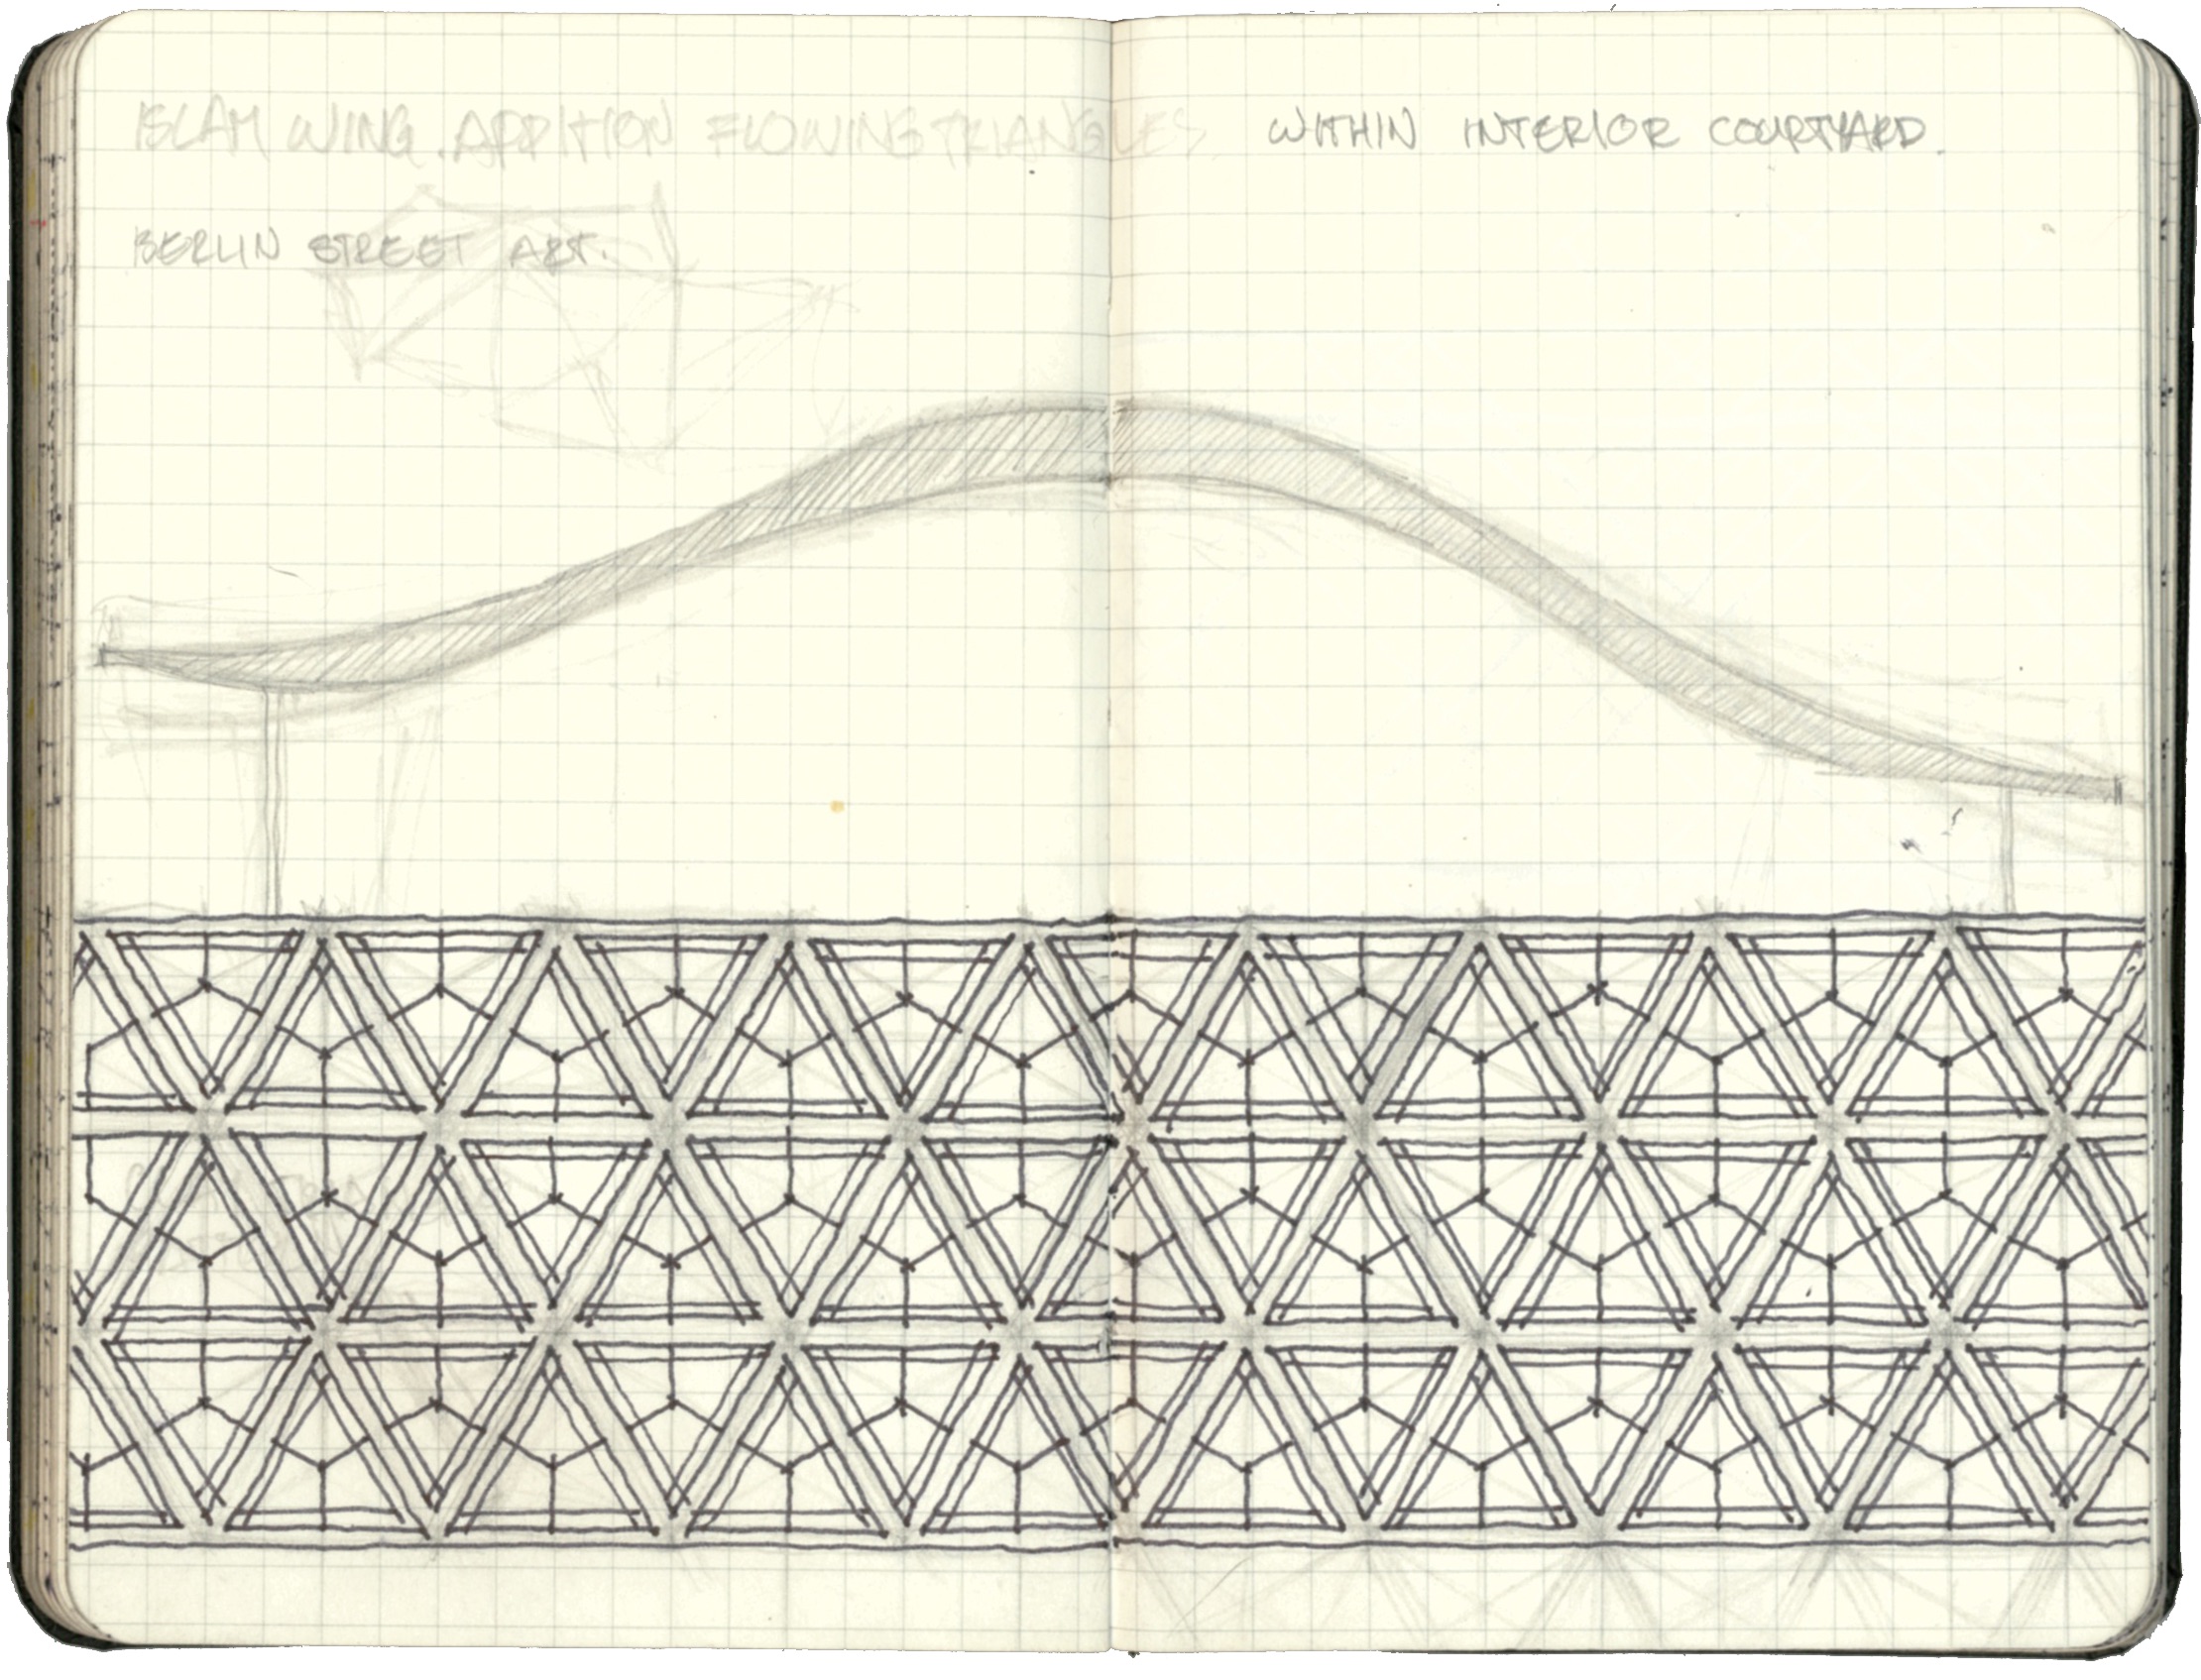 ISLAM WING. ADDITION FLOWING TRIANGLES WITHIN INTERIOR COURTYARD.
BERLIN STREET ART.